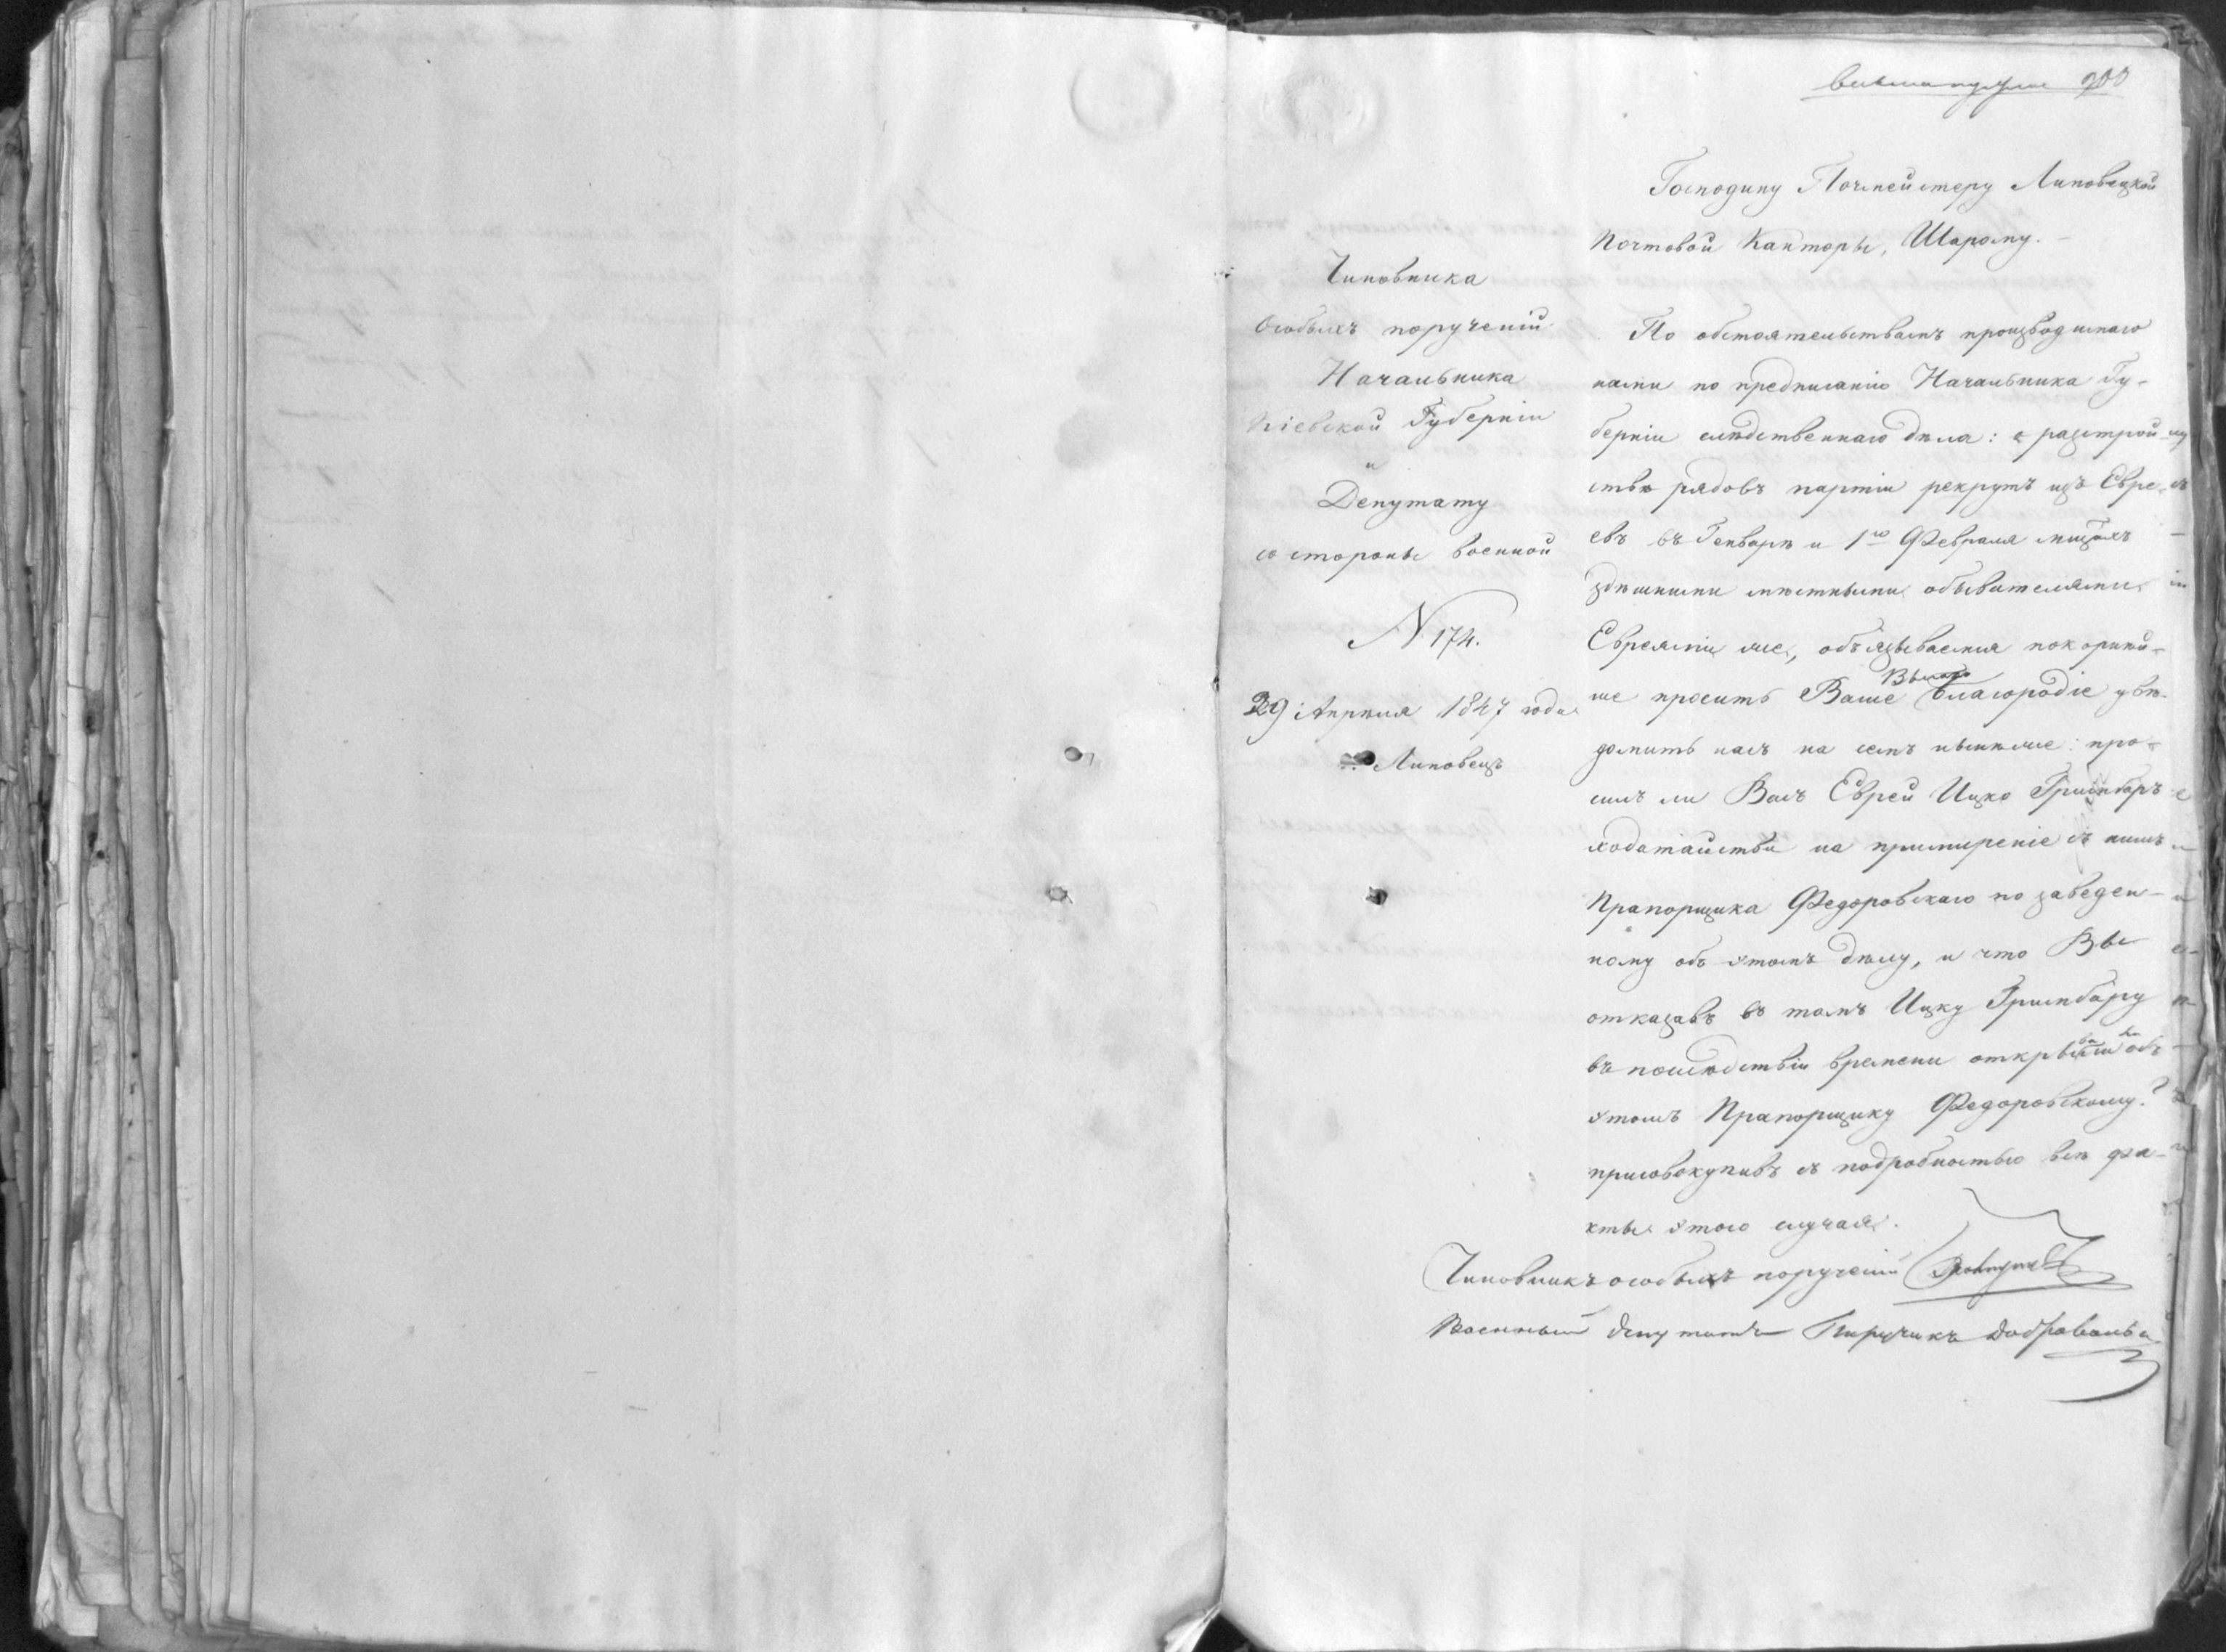 200
Господину Почмейстеру Липовецкой
Почтовой Канторы, Шарому.
Чиновника
Особыхъ порученій
Начальника
Кіевской Губерніи
и
Депутату
со стороны военной
N 174.
29 Апрѣля 1847 года
Липовецъ
По обстоятельствамъ производимаго
нами по предписанію Начальника Гу-
берніи слѣдственнаго дѣла: о разстрой-
ствѣ рядовъ партіи рекрутъ изъ Евре-
евъ въ Генварѣ и 1го Февраля
здѣшними мѣстными обывателями
Евреями же, обязываемся покорнѣй-
ше просить Ваше Высоко
благородіе увѣ-
домить насъ на семъ нынѣже: про-
силъ ли Васъ Еврей Ицко Гринбаръ
ходатайства на примиреніе съ нимъ
Прапорщика Федоровскаго по заведен-
ному объ этомъ дѣлу, и что Вы
отказавъ въ томъ Ицку Гринбару
въ послѣдствіи времени объ
этомъ Прапорщику Федоровскому?
присовокупивъ съ подробностью всѣ фа-
кты этого случая.
Чиновникъ особыхъ порученій
Военный депутатъ Поручикъ